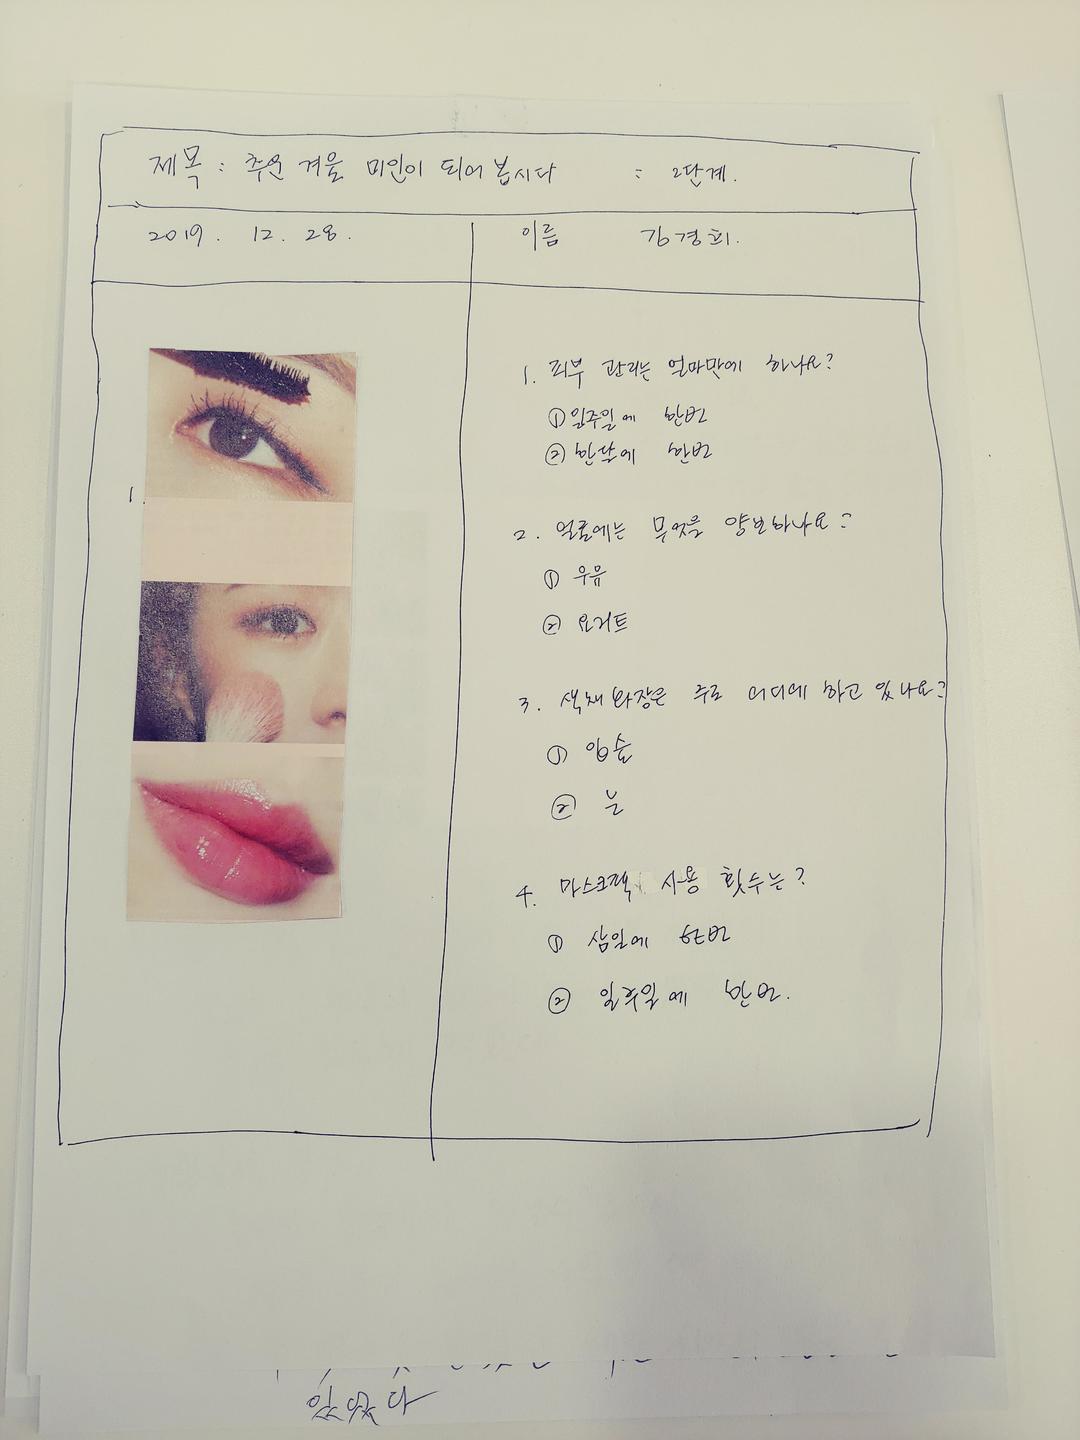 제목 : 추운 겨울 미인이 되어 봅시다 : 2단계.
2019. 12. 28.
이름 김경희.
1.
1. 피부 관리는 얼마만에 하나요?
① 일주일에 한번
② 한달에 한번
2. 얼굴에는 무엇을 양보하나요?
① 우유
② 요거트
3. 색채화장은 주로 어디에 하고 있나요?
① 입술
② 눈
4. 마스크팩 사용 횟수는?
① 삼일에 한번
② 일주일에 한번.
있었다